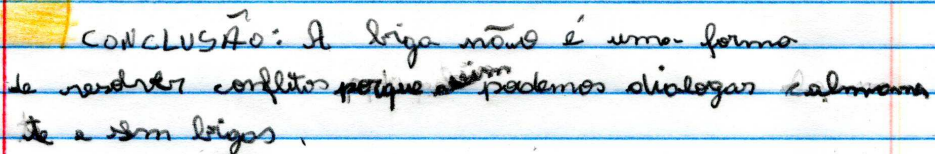 CONCLUSÃO: A briga não é uma forma
de resolver conflitos porque assim podemos dialogar calmamen
te e sem brigas.